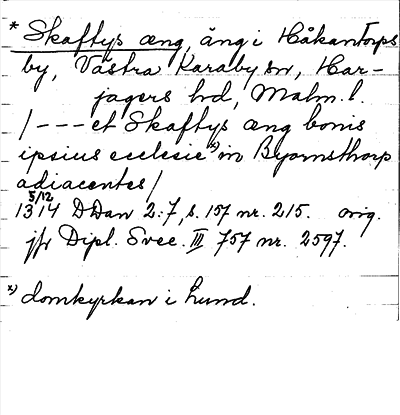 * Skaftys æng, äng i Håkantorps
by, Västra Karaby sn, Har-
jagers hd, Malm. l.
/--- et Skaftys æng bonis
ipsius ecclesie x) in Byornsthorp
adiacentes/
5/12
1314 DDan 2:7, s. 157 nr. 215. orig.
jfr Dipl. Svec. III 757 nr. 2597.
x) domkyrkan i Lund.